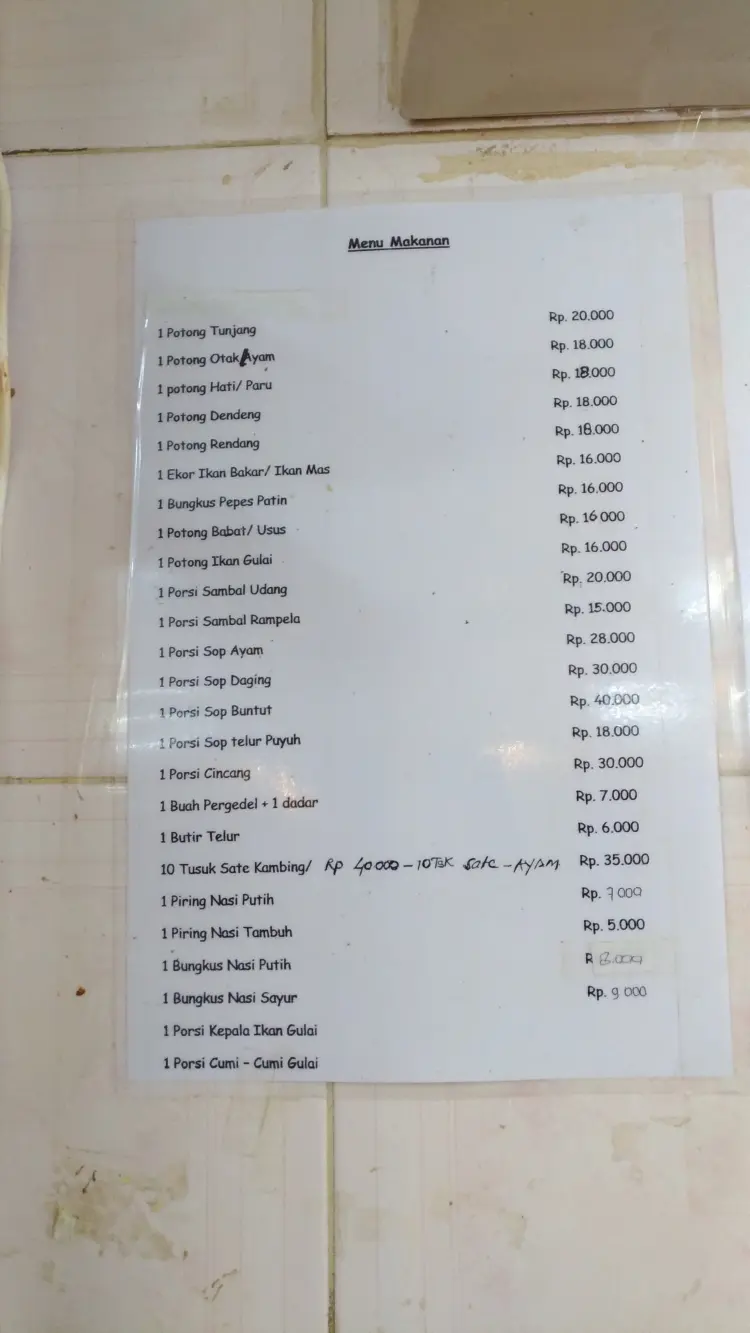 Menu Makanan
1 Potong Tunjang Rp. 20.000
1 Potong Otak/Ayam Rp. 18.000
1 potong Hati/ Paru Rp. 18.000
1 Potong Dendeng Rp. 18.000
1 Potong Rendang Rp. 18.000
1 Ekor Ikan Bakar/ Ikan Mas Rp. 16.000
1 Bungkus Pepes Patin Rp. 16.000
1 Potong Babat/ Usus Rp. 16 000
1 Potong Ikan Gulai Rp. 16.000
1 Porsi Sambal Udang Rp. 20.000
1 Porsi Sambal Rampela Rp. 15.000
1 Porsi Sop Ayam Rp. 28.000
1 Porsi Sop Daging Rp. 30.000
1 Porsi Sop Buntut Rp. 40.000
1 Porsi Sop telur Puyuh Rp. 18.000
1 Porsi Cincang Rp. 30.000
1 Buah Pergedel + 1 dadar Rp. 7.000
1 Butir Telur Rp. 6.000
10 Tusuk Sate Kambing/ Rp 40000 - 10TSK Sate - AYAM Rp. 35.000
1 Piring Nasi Putih Rp. 7 000
1 Piring Nasi Tambuh Rp. 5.000
1 Bungkus Nasi Putih R 8.000
1 Bungkus Nasi Sayur Rp. 9 000
1 Porsi Kepala Ikan Gulai
1 Porsi Cumi - Cumi Gulai